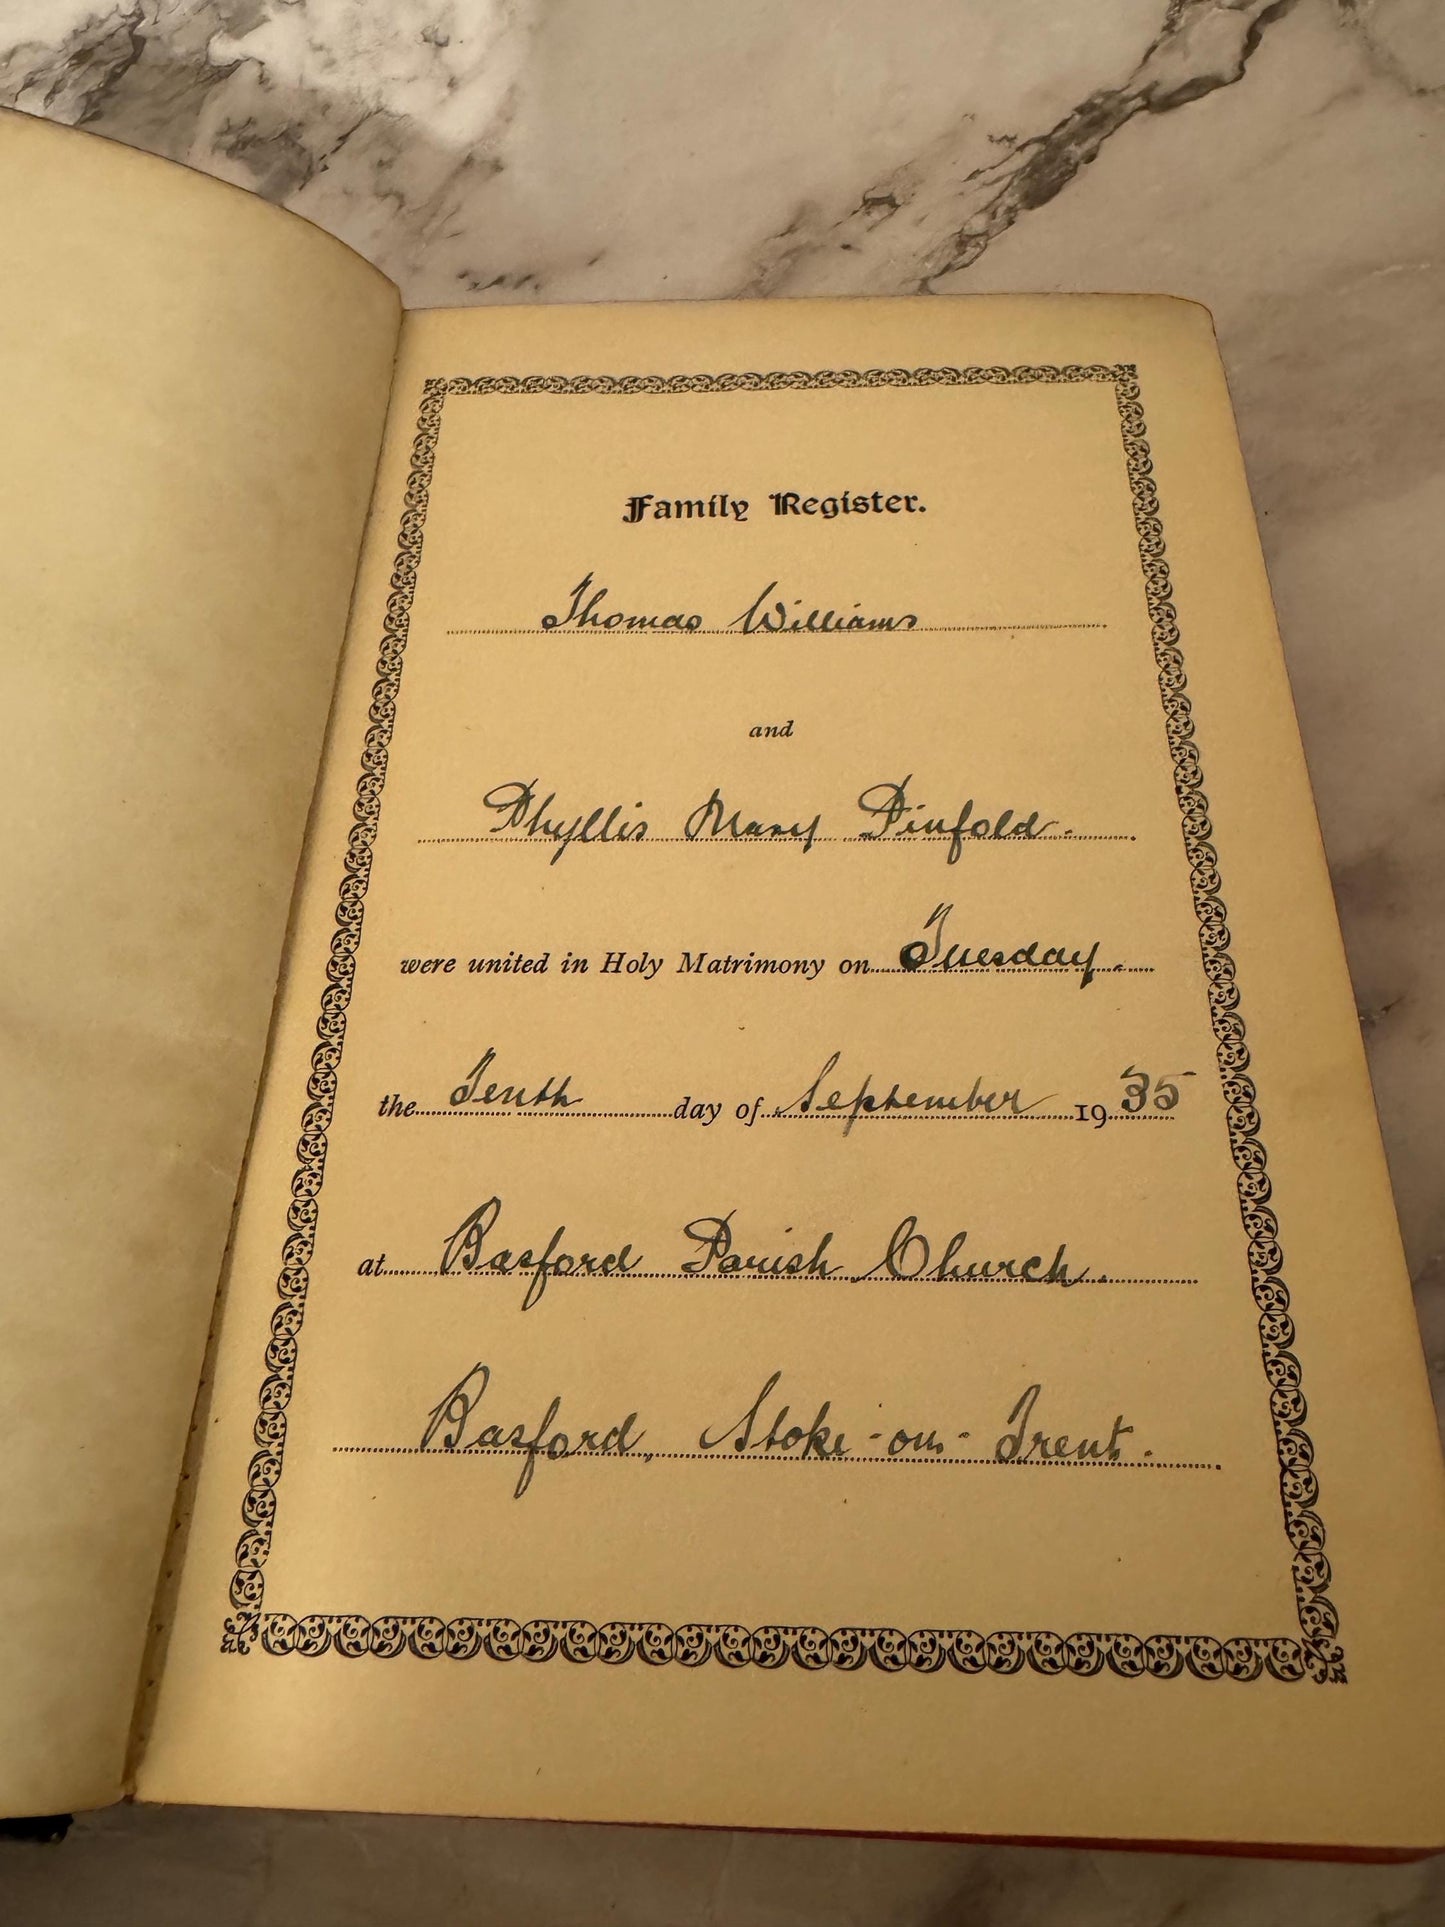 Family Register.
Thomas Williams
and
Phyllis Mary Pinfold.
were united in Holy Matrimony on Tuesday.
the Tenth day of September 1935
at Basford Parish Church.
Basford, Stoke-on-Trent.